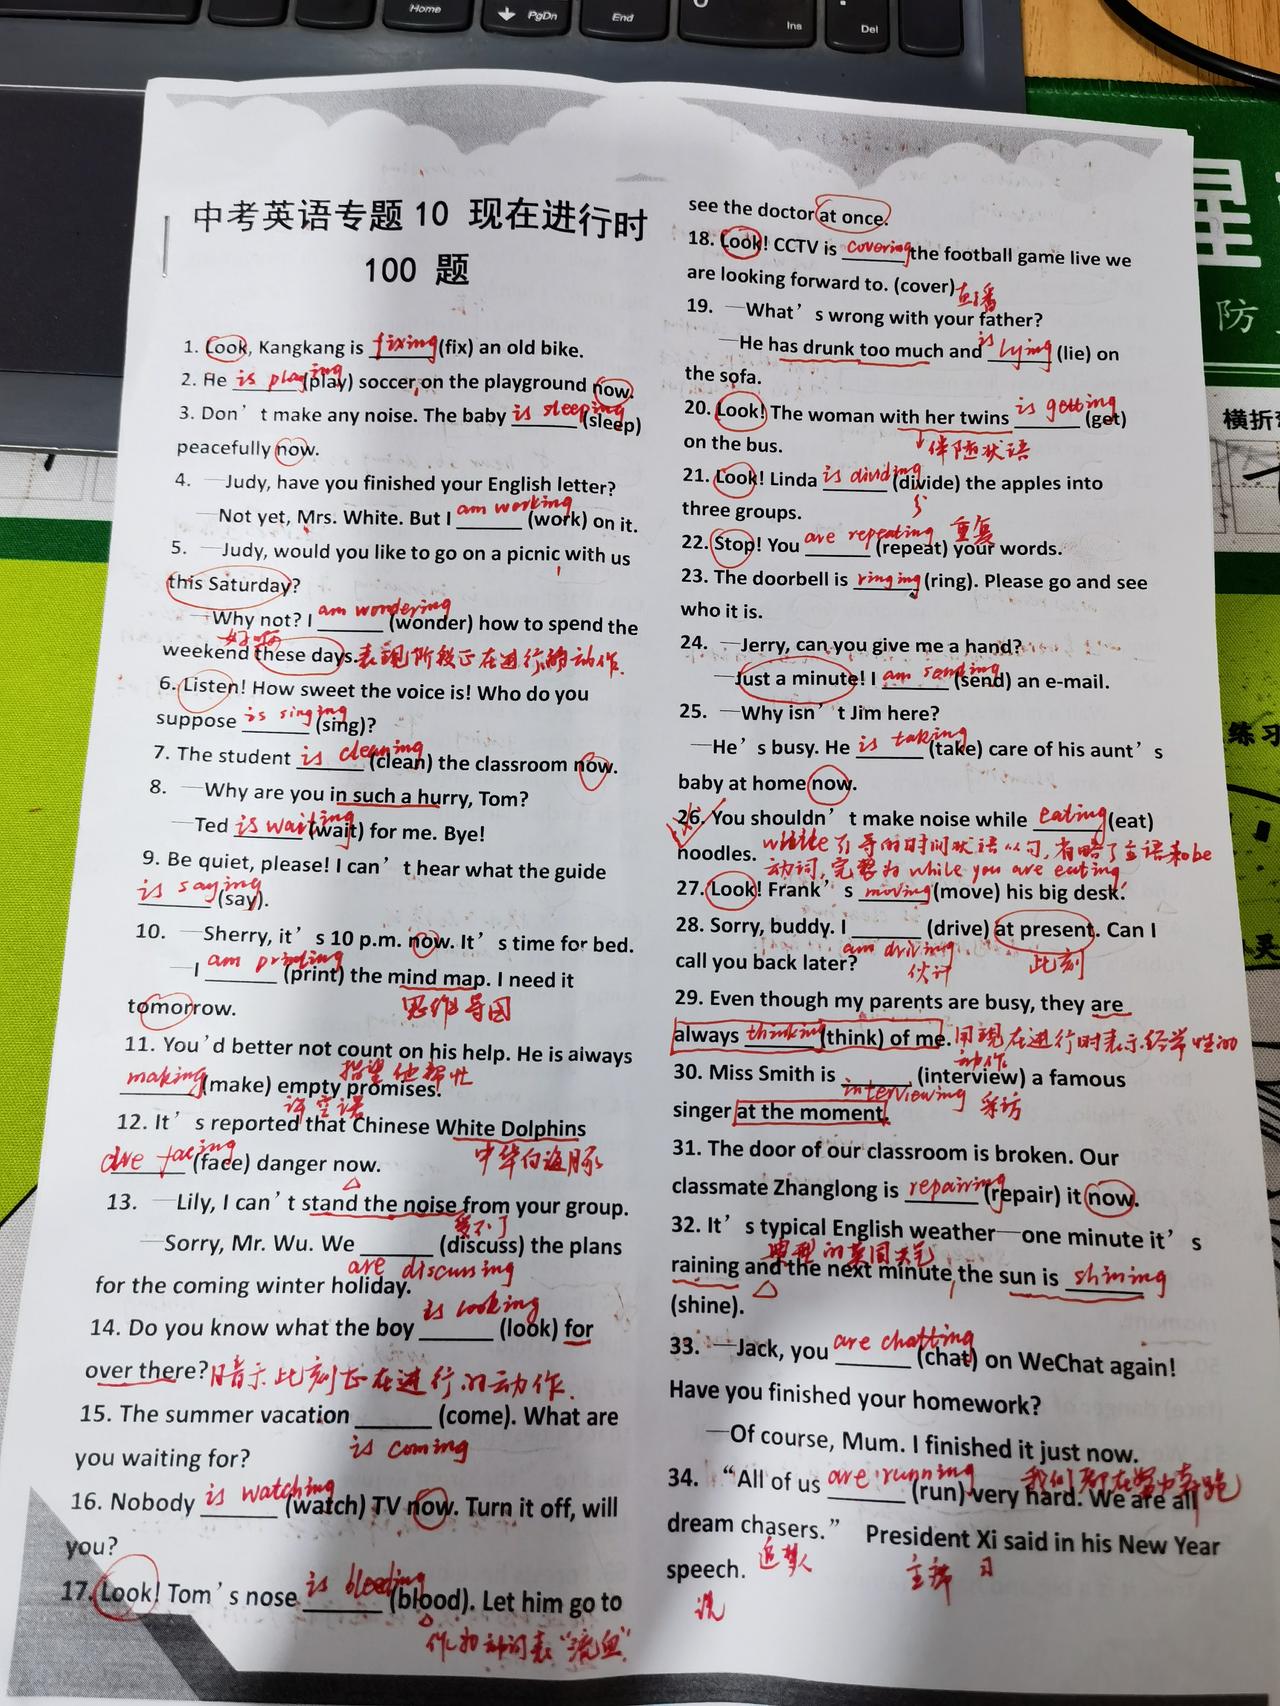 Home
PgDn
End
Ins
Del
星
防
横折
练习
中考英语专题10 现在进行时
100 题
1. Look, Kangkang is fixing (fix) an old bike.
2. He is playing (play) soccer on the playground now.
3. Don't make any noise. The baby is sleeping (sleep)
peacefully now.
4. —Judy, have you finished your English letter?
—Not yet, Mrs. White. But I am working (work) on it.
5. —Judy, would you like to go on a picnic with us
this Saturday?
—Why not? I am wondering (wonder) how to spend the
好啊
weekend these days. 表现阶段正在进行的动作.
6. Listen! How sweet the voice is! Who do you
suppose is singing (sing)?
7. The student is cleaning (clean) the classroom now.
8. —Why are you in such a hurry, Tom?
—Ted is waiting (wait) for me. Bye!
9. Be quiet, please! I can't hear what the guide
is saying (say).
10. —Sherry, it's 10 p.m. now. It's time for bed.
—I am printing (print) the mind map. I need it
tomorrow. 思维导图
11. You'd better not count on his help. He is always
指望他帮忙
making (make) empty promises.
许空诺
12. It's reported that Chinese White Dolphins
are facing (face) danger now. 中华白海豚
13. —Lily, I can't stand the noise from your group.
受不了
—Sorry, Mr. Wu. We ______ (discuss) the plans
are discussing
for the coming winter holiday.
14. Do you know what the boy is looking (look) for
over there? 暗示此刻正在进行的动作.
15. The summer vacation ______ (come). What are
you waiting for? is coming
16. Nobody is watching (watch) TV now. Turn it off, will
you?
17. Look! Tom's nose is bleeding (blood). Let him go to
作为动词表“流血”
see the doctor at once.
18. Look! CCTV is covering the football game live we
are looking forward to. (cover) 直播
19. —What's wrong with your father?
—He has drunk too much and is lying (lie) on
the sofa.
20. Look! The woman with her twins is getting (get)
on the bus. 伴随状语
21. Look! Linda is dividing (divide) the apples into
three groups. 分
22. Stop! You are repeating (repeat) your words. 重复
23. The doorbell is ringing (ring). Please go and see
who it is.
24. —Jerry, can you give me a hand?
—Just a minute! I am sending (send) an e-mail.
25. —Why isn't Jim here?
—He's busy. He is taking (take) care of his aunt's
baby at home now.
26. You shouldn't make noise while eating (eat)
noodles. while引导的时间状语从句,省略了主语和be
动词,完整为while you are eating.
27. Look! Frank's moving (move) his big desk.
28. Sorry, buddy. I ______ (drive) at present. Can I
am driving
call you back later? 伙计 此刻
29. Even though my parents are busy, they are
always thinking (think) of me. 用现在进行时表示经常性的
动作
30. Miss Smith is ______ (interview) a famous
interviewing 采访
singer at the moment.
31. The door of our classroom is broken. Our
classmate Zhanglong is repairing (repair) it now.
32. It's typical English weather—one minute it's
典型的英国天气
raining and the next minute, the sun is shining
(shine).
33. —Jack, you are chatting (chat) on WeChat again!
Have you finished your homework?
—Of course, Mum. I finished it just now.
34. “All of us are running (run) very hard. We are all
我们都在努力奔跑
dream chasers.” President Xi said in his New Year
speech. 追梦人 主席 习
说